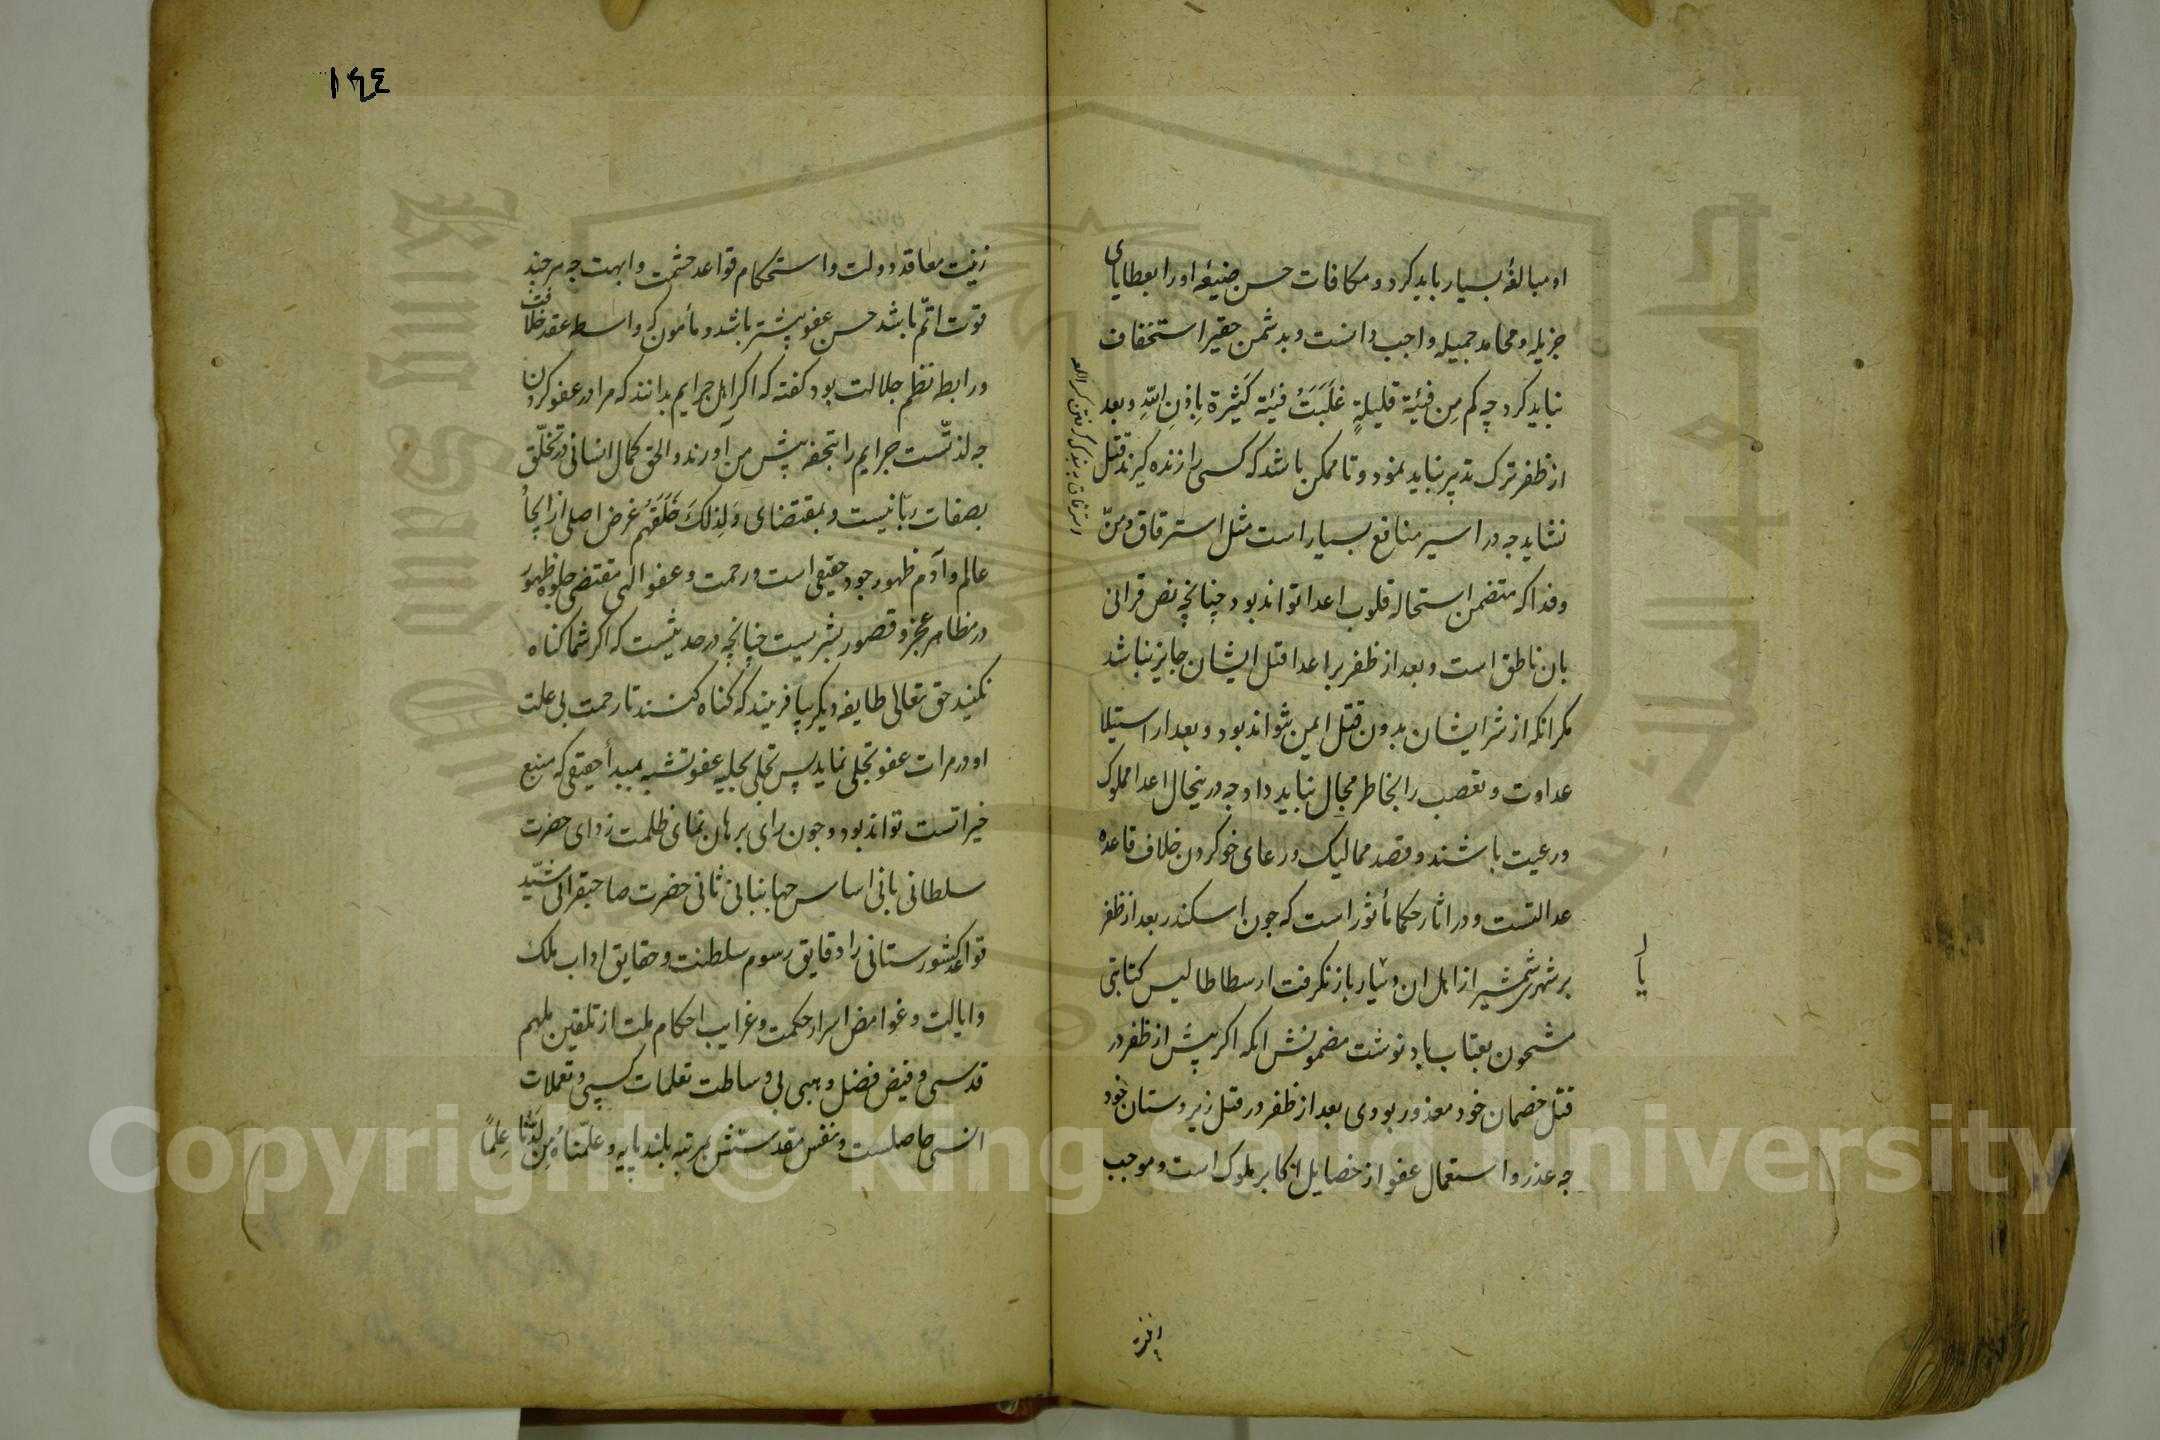 او مبالغهٔ بسیار باید کرد و مکافات حسن ضیعهٔ اورا بعطایای
جزیله و محامد جمیله واجب دانست و بدشمن حقیر استخفاف
نباید کرد چه کم مِن فِئَیة قلیلةٍ غَلَبَتْ فیئة کَثیرة بِاِذنِ اللهِ و بعد
از ظفر ترک تدبیر نباید نمود و تا ممکن باشد که کسی را زنده کیرند قتل
نشاید جه در اسیر منافع بسیار است مثل استرقاق و منّ
و فدا که متضمن استحاله قلوب اعدا تواند بود چنانچه نص قرانی
بان ناطق است و بعد از ظفر بر اعدا قتل ایشان جایز نباشد
مکر انکه از شر ایشان بدون قتل ایمن نتواند بود و بعد از استیلا
عداوت و تعصب را بخاطر مجال نباید داد جه درینحال اعدا مملوک
و رعیت باشند و قصد ممالیک و رعای خو کردن خلاف قاعده
عدالتست و در اثار حکما مأثور است که جون اسکندر بعد از ظفر
بر شهری شمشیر از اهل ان دیار باز نکرفت ارسطاطالیس کتابتی
مشحون بعتاب باو نوشت مضمونش انکه اکر پیش از ظفر در
قتل خصمان خود معذور بودی بعد از ظفر در قتل زیر دستان خود
جه عذر و استعمال عفو از خصایل اکابر ملوک است و موجب
استرقاق به بندکی کرفتن
١٤٤
زینت معاقد دولت و استحکام قواعد حشمت و ابهت جه هر جند
قوت اتمّ باشد حسن عفو بیشتر باشد و مأمون که واسطه عقد خلافت
و رابط نظم جلالت بود کفته که اکر اهل جرایم بدانند که مرا در عفو کردن
جه لذتست جرایم را بتحفه پیش من آورند و الحق کمال انسانی در تخلّق
بصفات ربّانیست و بمقتضای وَلِذلِکَ خَلَقَهُم غرض اصلی از ایجاد
عالم و آدم ظهور جود حقیقی است و رحمت و عفو الهی مقتضی جلوه ظهور
در مظاهر عجز و قصور بشریست چنانچه در حدیثست که اکر شما کناه
نکنید حق تعالی طایفه دیکر بیافریند که کناه کنند تا رحمت بی علت
او در مرات عفو تجلی نماید پس تحلی بحلیه عفو تشبه بمبدأ حقیقی که منبع
خیراتست تواند بود و جون رای برهان نمای ظلمت زدای حضرت
سلطانی بانی اساس جهانبانی ثانی حضرت صاحبقرانی مشیّد
قواعد کشورستانی را دقایق رسوم سلطنت و حقایق اداب ملک
و ایالت و غوامض اسرار حکمت و غرایب احکام ملت از تلقین ملهم
قدسی و فیض فضل وهبی بی وساطت تعلمات کسبی و تعملات
انسی حاصلست و نفس مقدسّتش بمرتبه بلند پایه و علّمناهُ مِن لَدُنّا عِلماً
Copyright © King Saud University